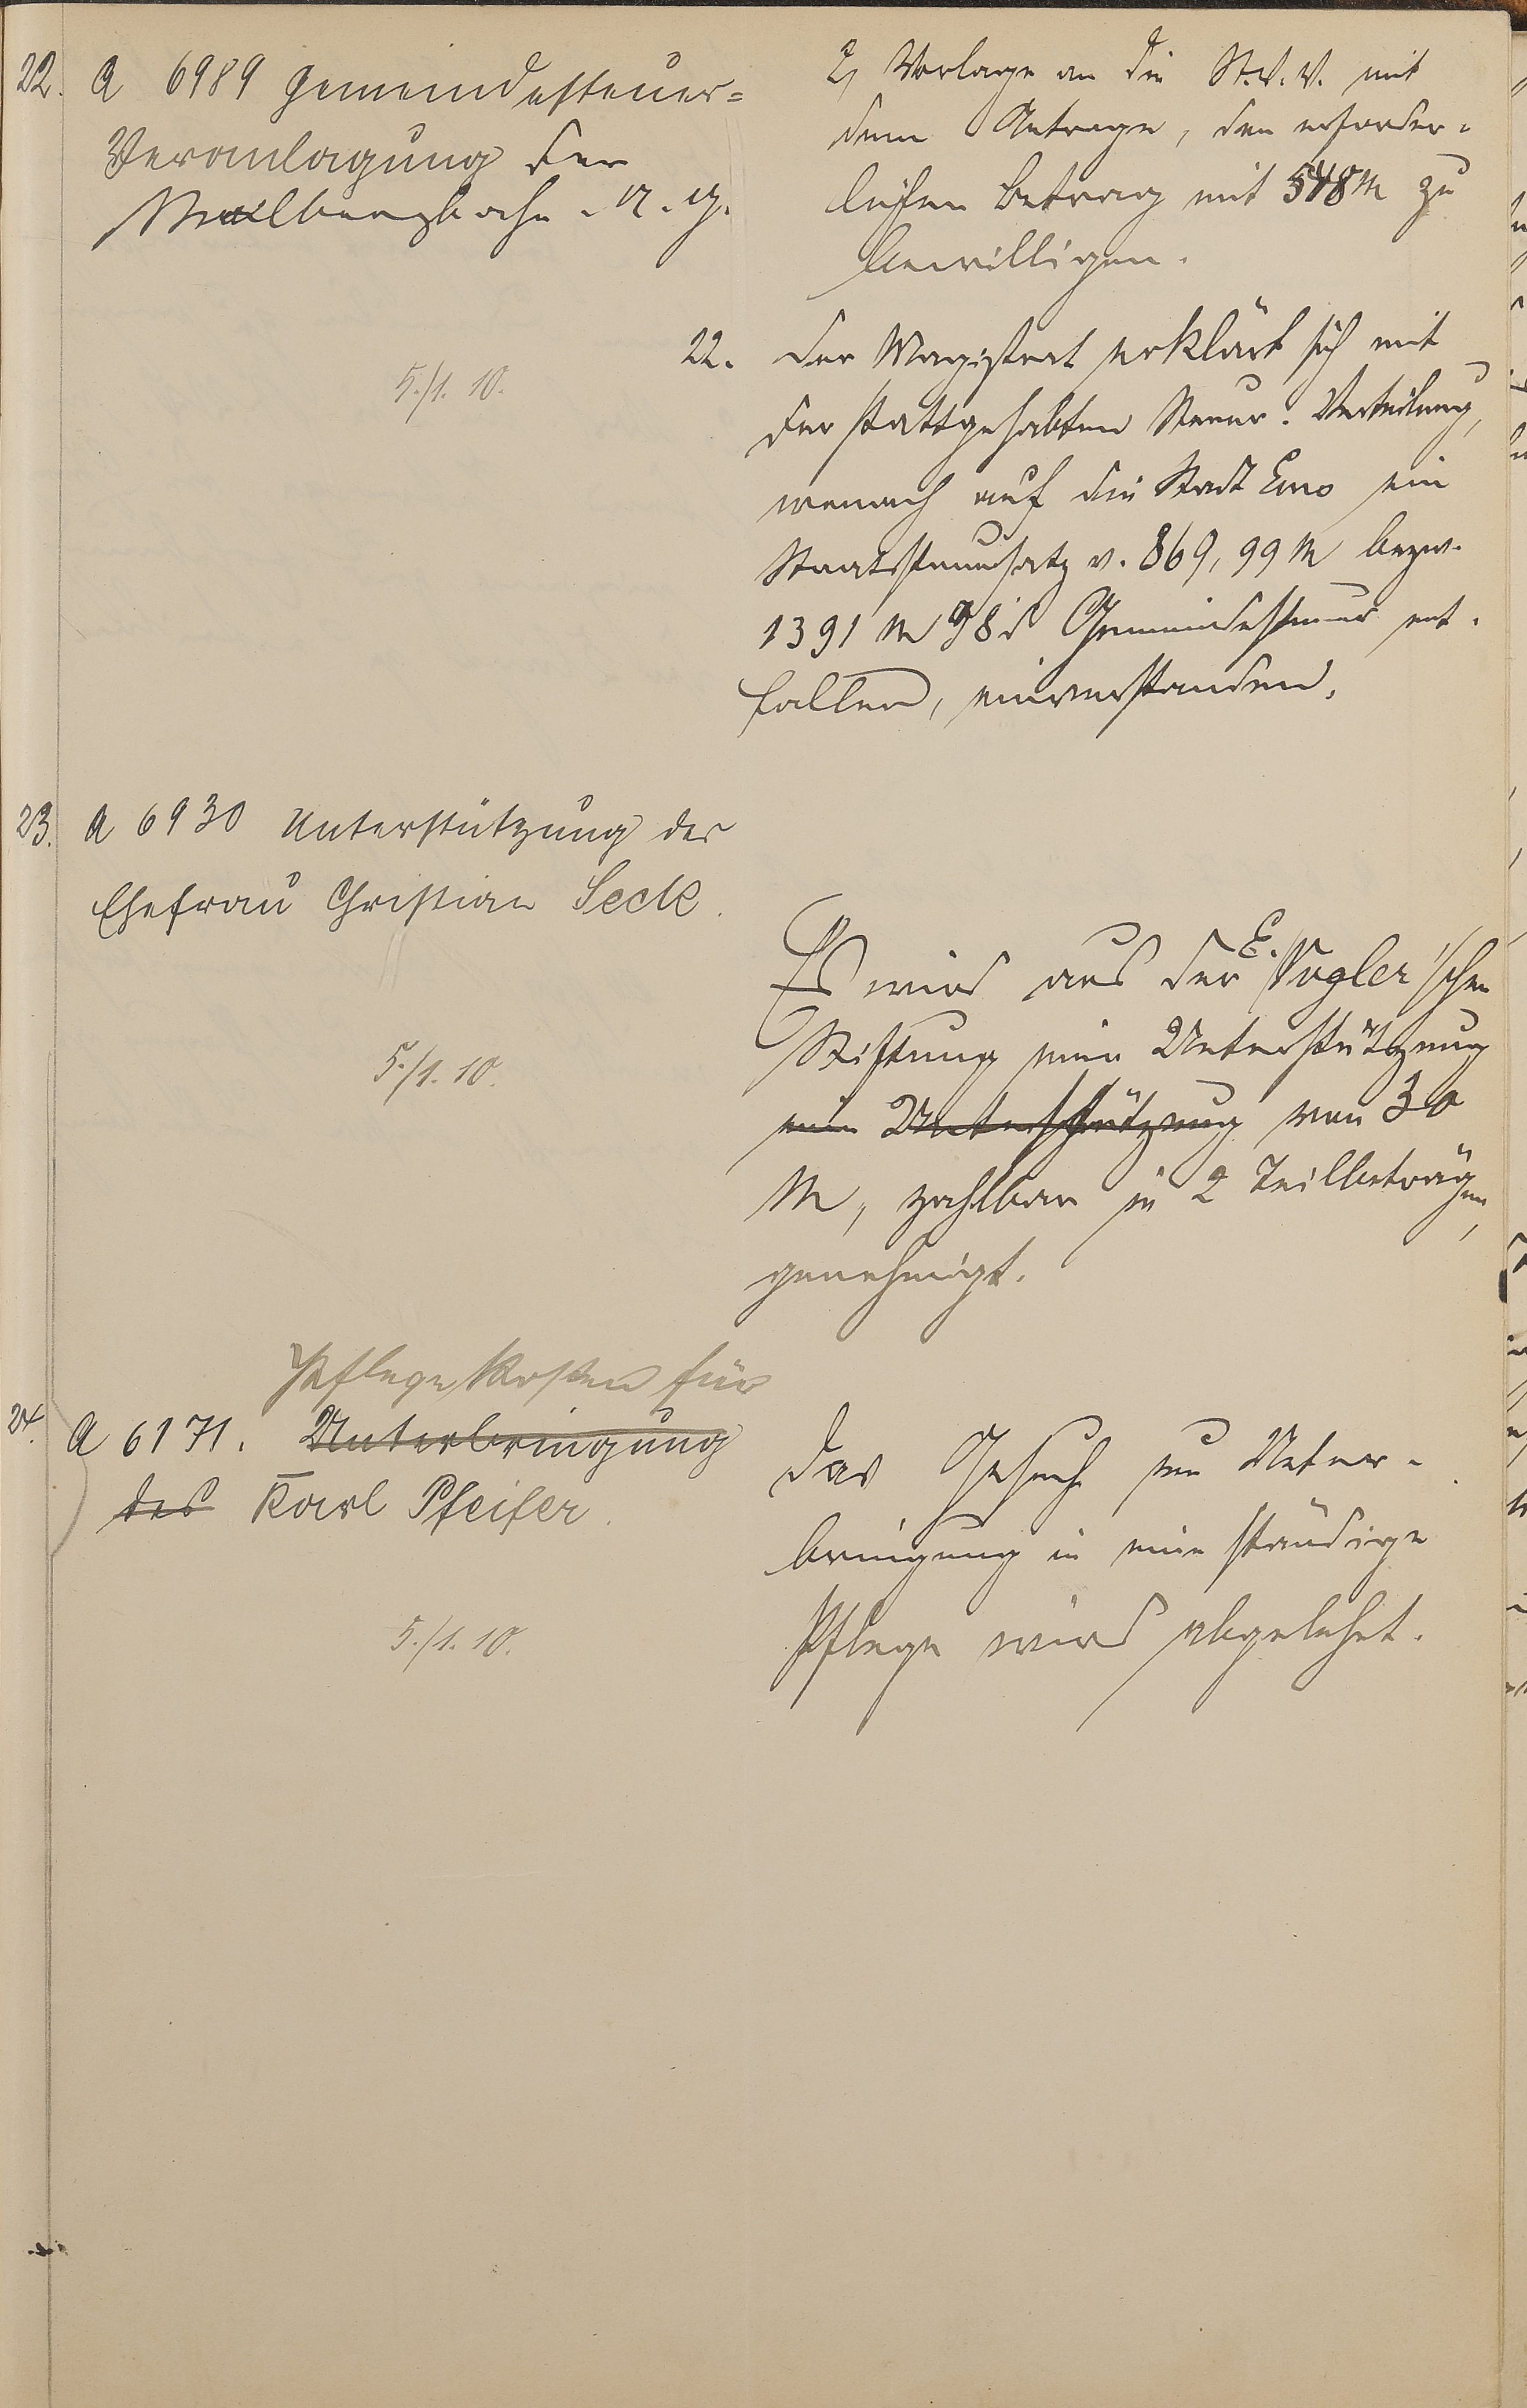 22. A 6989 Gemeindesteuer=
Veranlagung der
Malbergbahn A. G.
5./1. 10.
2, Vorlage an die St. V. V. mit
dem Antrage, den erforder-
lichen Betrag mit 548 M zu
bewilligen.
22. Der Magistrat erklärt sich mit
der stattgehabten Steuer-Verteilung,
wonach auf die Stadt Ems ein
Staatssteuersatz v. 869,99 M bezw.
1391 M 98 d Gemeindesteuer ent-
fallen, einverstanden.
23. A 6930 Unterstützung der
Ehefrau Christian Seck.
5./1. 10.
Es wird aus der E. Vogler'schen
Stiftung eine Unterstützung
eine Unterstützung von 30
M, zahlbar in 2 Teilbeträgen,
genehmigt.
Pflegekosten für
24. A 6171. Unterbringung
des Karl Pfeifer.
5./1. 10.
Das Gesuch um Unter-
bringung in eine ständige
Pflege wird abgelehnt.